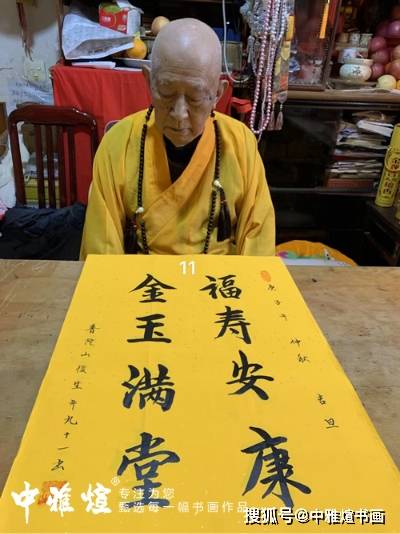 11
庚子年 仲秋 吉旦
福寿安康
金玉满堂
普陀山俊生年九十一书
中雅煊®
专注为您
甄选每一幅书画作品
搜狐号@中雅煊书画